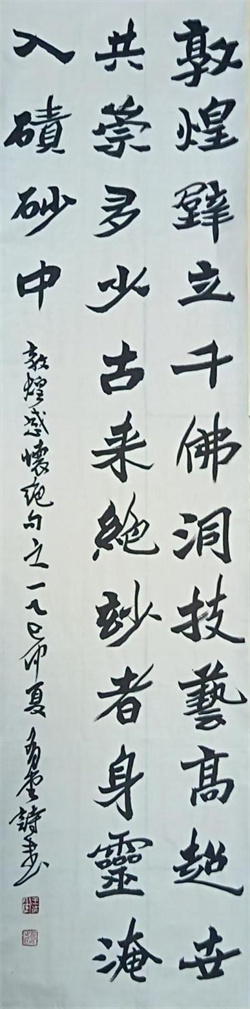 敦煌壁立千佛洞技藝高超世
共崇多少古来絶妙者身靈淹
入磧砂中
敦煌感懷絶句之一乙巳仲夏 詩書